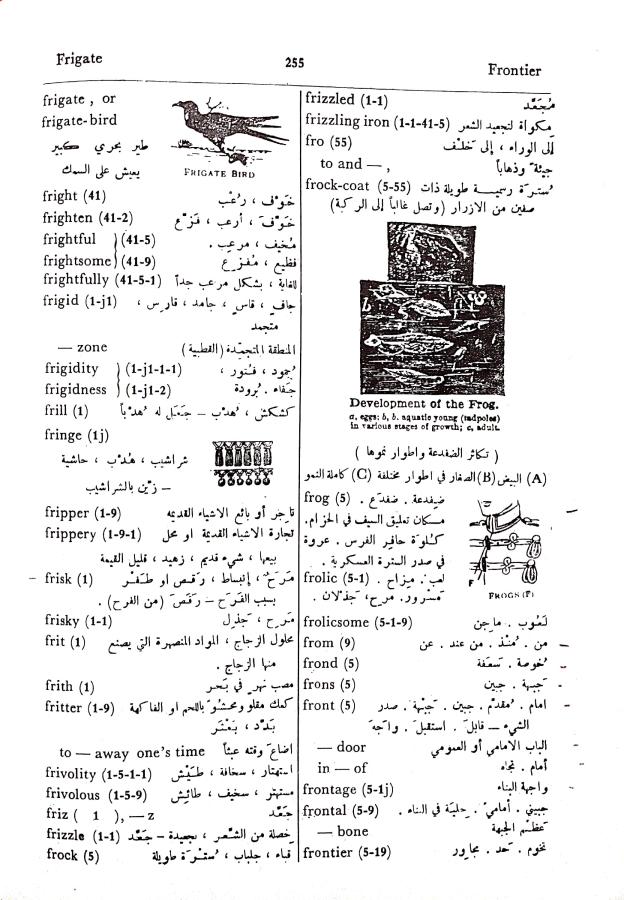 Frigate
255
Frontier
frigate , or
frigate-bird
طير بحري كبير
يعيش على السمك
FRIGATE BIRD
fright (41) خَوْف ، رُعْب
frighten (41-2) خَوَّفَ ، أرعب ، فَزَّع
frightful } (41-5) مُخيف ، مرعب .
frightsome } (41-9) فظيع ، مُفزع
frightfully (41-5-1) للغاية ، بشكل مرعب جداً
frigid (1-j1) جاف ، قاس ، جامد ، قارس ،
متجمد
— zone المنطقة المتجمّدة (القطبية)
frigidity } (1-j1-1-1) جُمود ، فُتور ،
frigidness } (1-j1-2) جَفاء . بُرودة
frill (1) كشكش ، هُدْب – جَعَل له هُدْباً
fringe (1j)
شراشيب ، هُدْب ، حاشية
– زيّن بالشراشيب
fripper (1-9) تاجر أو بائع الاشياء القديمة
frippery (1-9-1) تجارة الاشياء القديمة او محل
بيعها ، شيء قديم ، زهيد ، قليل القيمة
frisk (1) مَرَح ، إنبساط ، رَقص او طَفْر
بسبب الفَرَح – رَقَصَ (من الفرح) .
frisky (1-1) مَرِح ، جَذِل
frit (1) محلول الزجاج ، المواد المنصهرة التي يصنع
منها الزجاج .
frith (1) مصب نهر في بَحر
fritter (1-9) كعك مقلو ومحشوّ باللحم او الفاكهة
بَدَّد ، بَعْثَر
to — away one's time اضاع وقته عبثاً
frivolity (1-5-1-1) استهتار ، سخافة ، طَيْش
frivolous (1-5-9) مستهتر ، سخيف ، طائش
friz ( 1 ), —z جَعَّد
frizzle (1-1) خصلة من الشَّعر ، تجعيدة – جَعَّد
frock (5) قباء ، جلباب ، سُتْرَة طويلة
frizzled (1-1) مُجَعَّد
frizzling iron (1-1-41-5) مِكواة لتجعيد الشعر
fro (55) إلى الوراء ، إلى خَلْف
to and — , جيئة وذهاباً
frock-coat (5-55) سُترَة رسمية طويلة ذات
صفين من الازرار (وتصل غالباً إلى الركبة)
Development of the Frog.
a, eggs; b, b. aquatic young (tadpoles)
in various stages of growth; c, adult.
( تكاثر الضفدعة واطوار نموها )
(A) البيض (B) الصغار في اطوار مختلفة (C) كاملة النمو
frog (5) ضِفدعة . ضفدَع .
مكان تعليق السيف في الحزام .
كُلوَة حافر الفرس . عروة
في صدر السترة العسكرية .
frolic (5-1) لعب . مزاح .
مَسْرور . مرح ، جَذلان .
F
FROGS (F)
frolicsome (5-1-9) لَعُوب . ماجن
from (9) من . مُنْذ . من عند . عن
frond (5) خُوصة . سَعَفة
frons (5) جَبهة . جبين
front (5) امام . مُقدَّم . جبين . جَبْهة . صدر
الشيء – قابلَ . استقبلَ . واجَهَ
— door الباب الامامي أو العمومي
in — of أمام . تجاه
frontage (5-1j) واجهة البناء
frontal (5-9) جبيني . أماميّ . حلية في البناء .
— bone عَظْم الجبهة
frontier (5-19) تخوم . حَد . مجاور